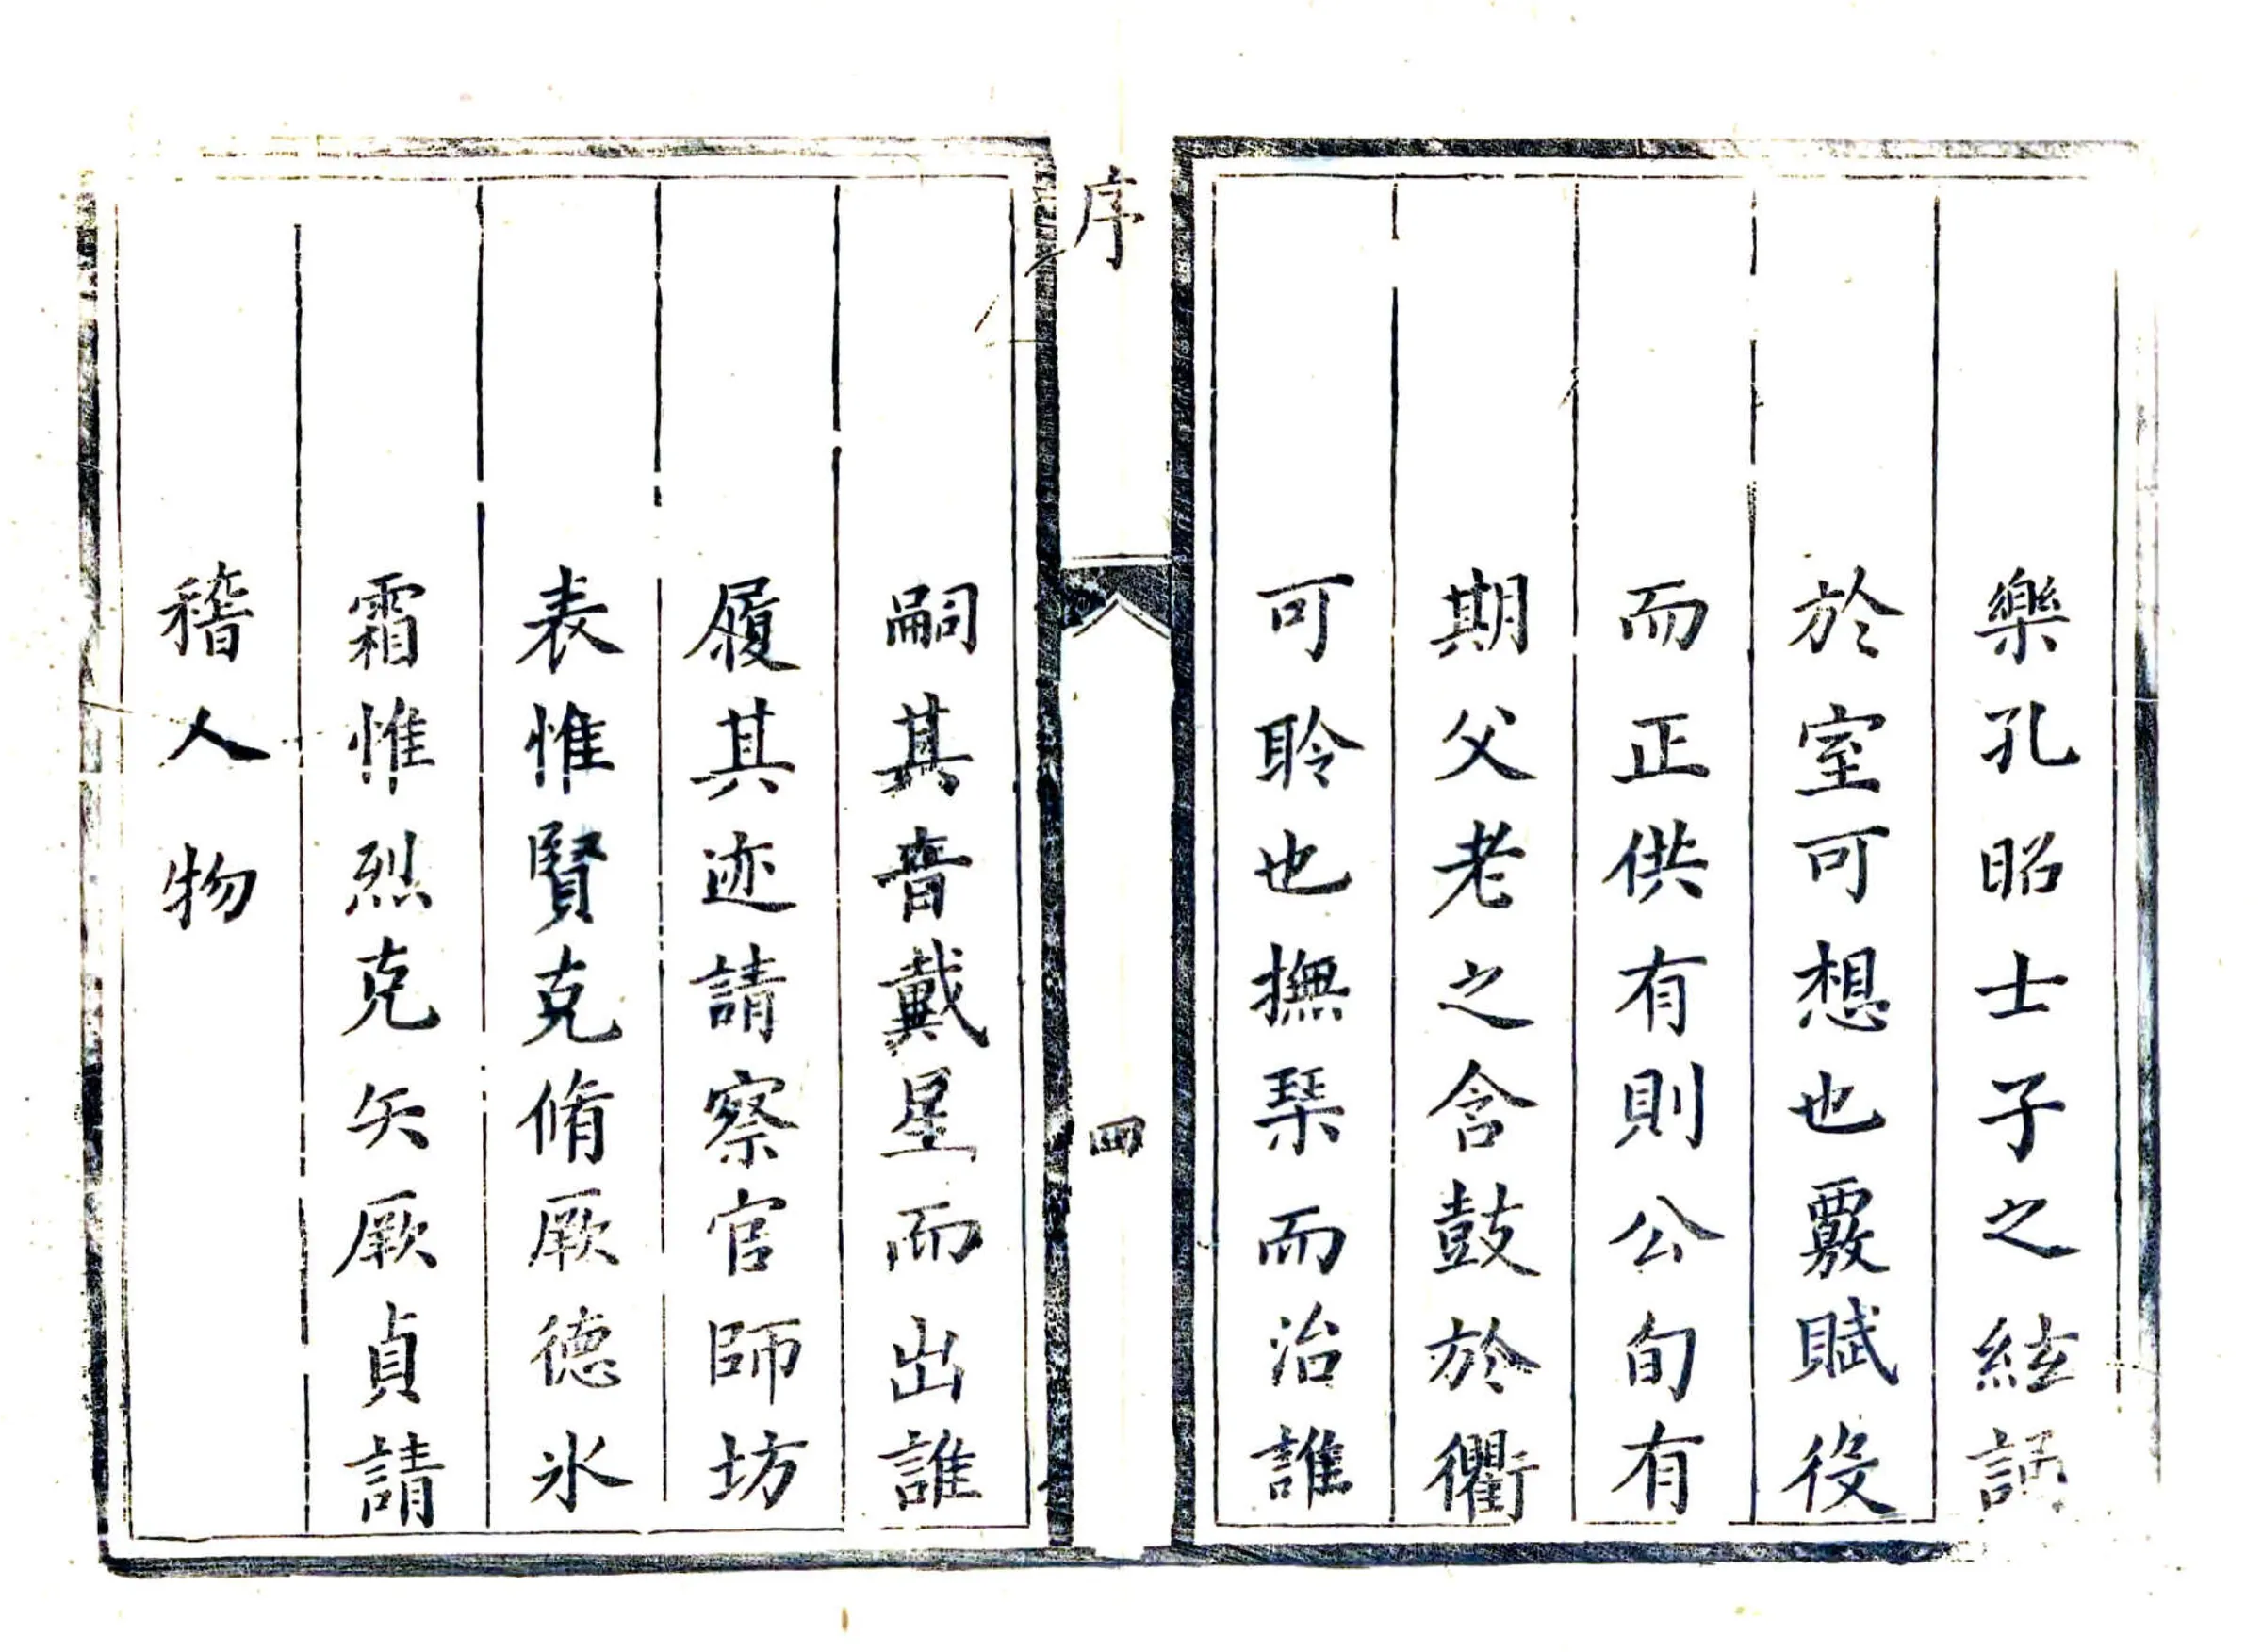 樂孔昭士子之絃誦
於室可想也覈賦役
而正供有則公旬有
期父老之含鼓於衢
可聆也撫琹而治誰
序
四
嗣其音戴星而出誰
履其迹請察官師坊
表惟賢克脩厥德氷
霜惟烈克矢厥貞請
稽人物